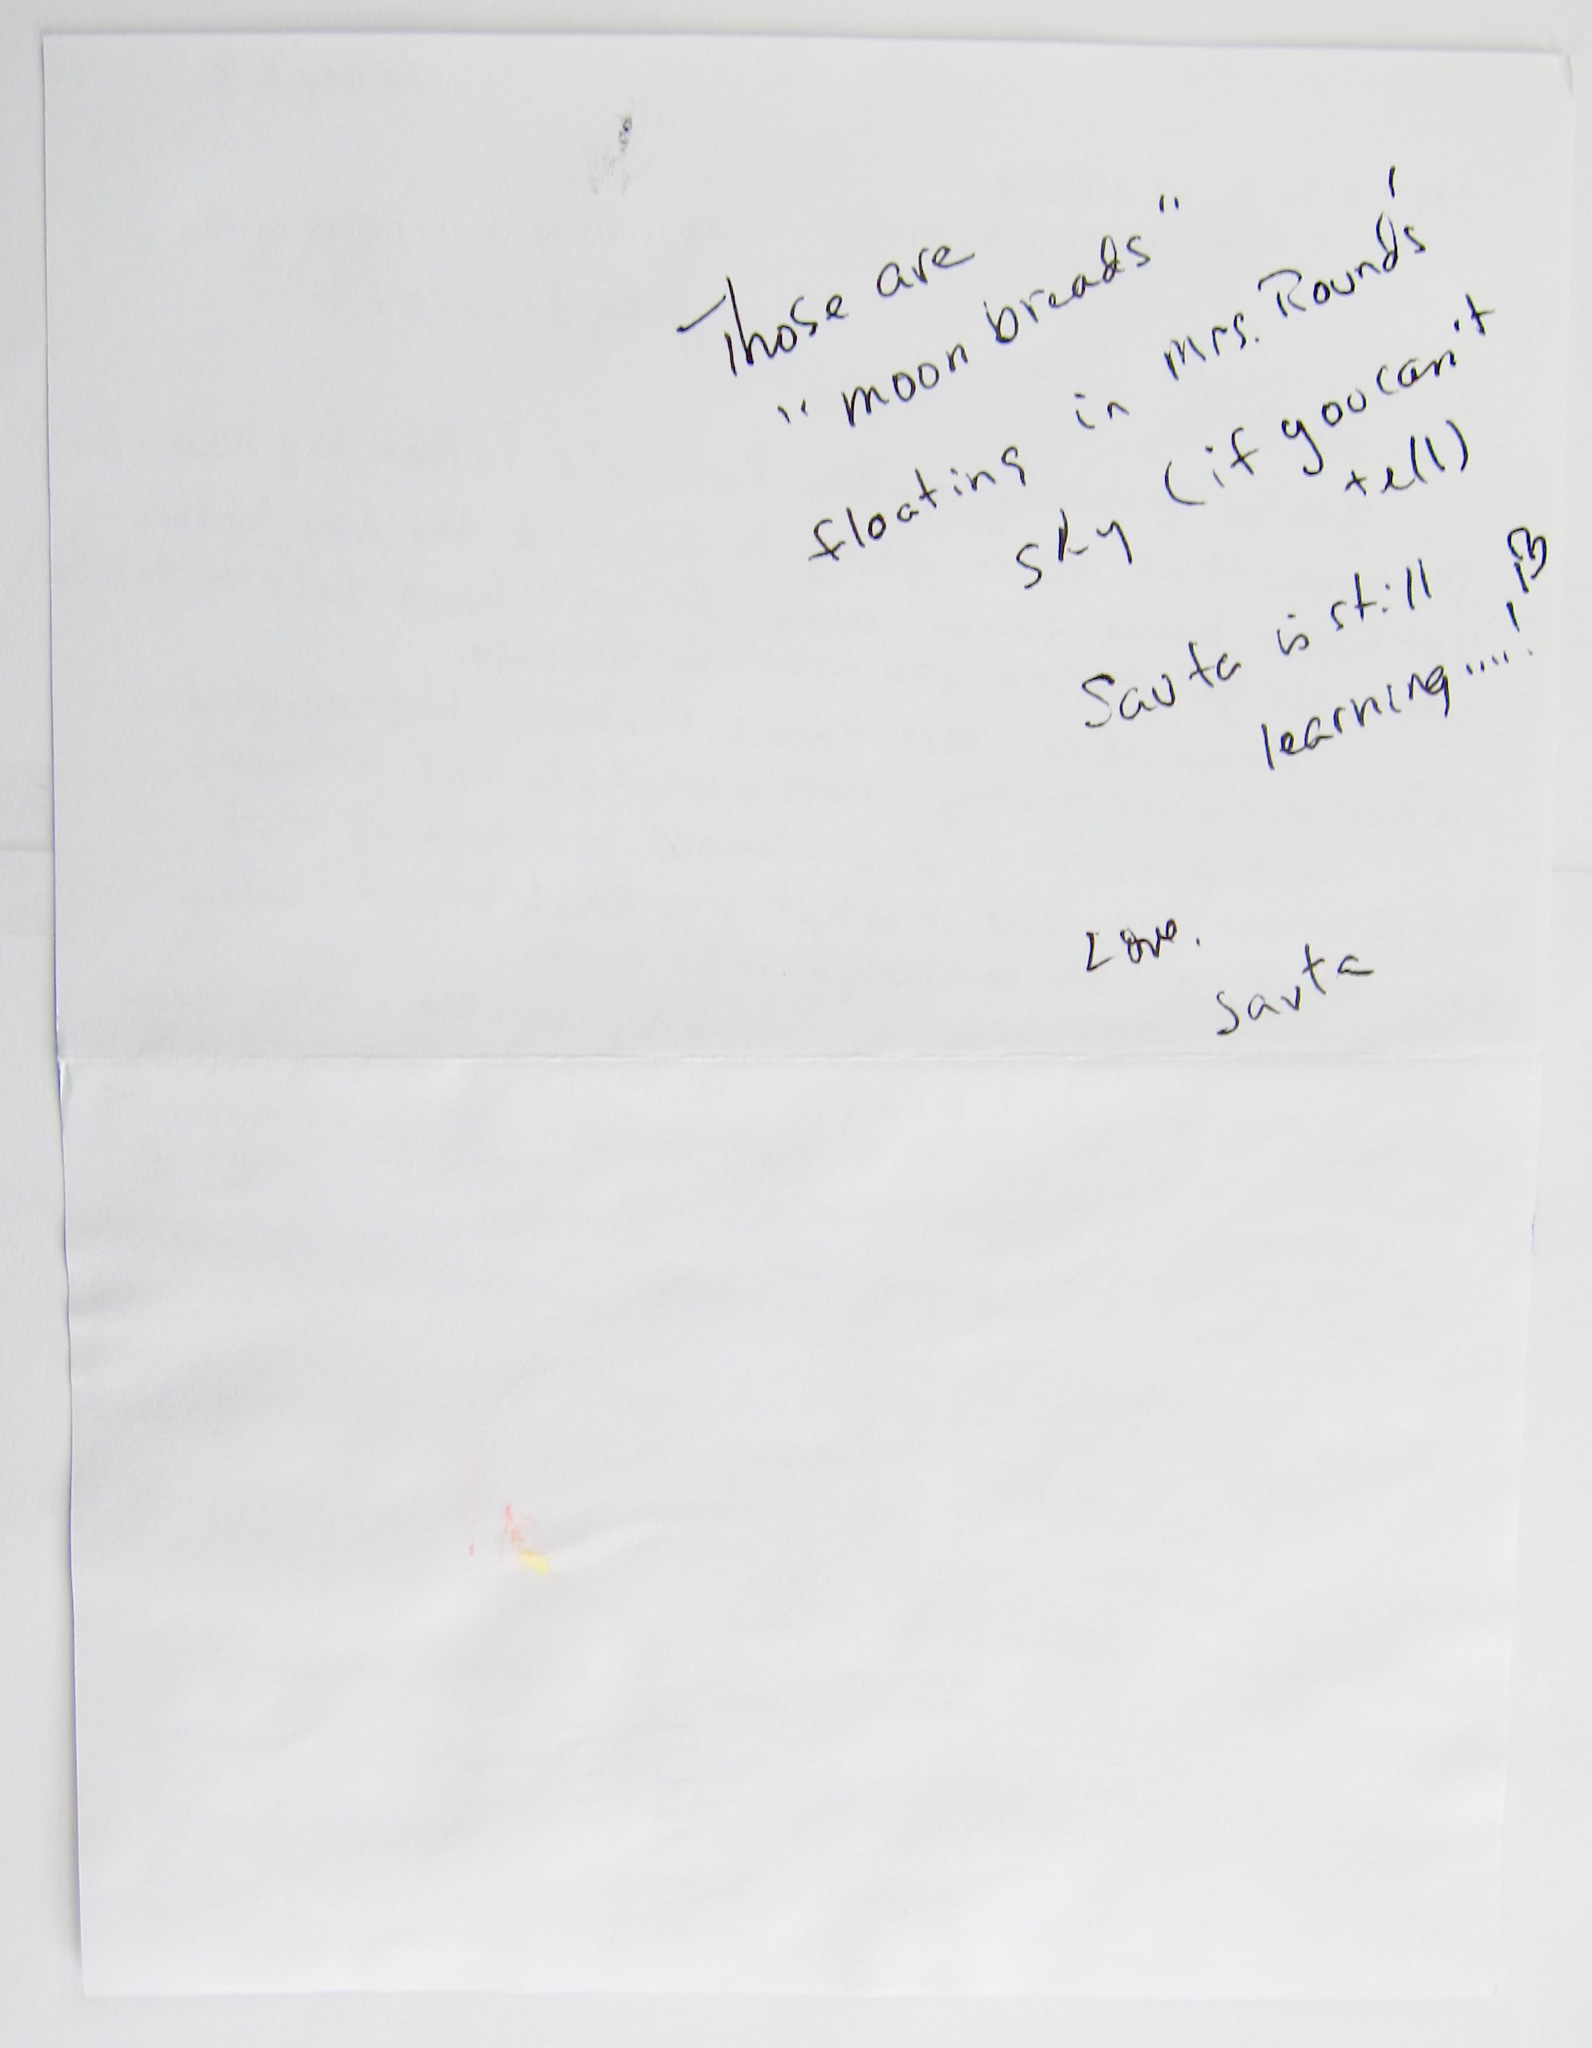 Those are
"moon breads"
floating in Mrs. Round's
sky (if you can't
tell)
Savta is still
learning....!
Love,
Savta